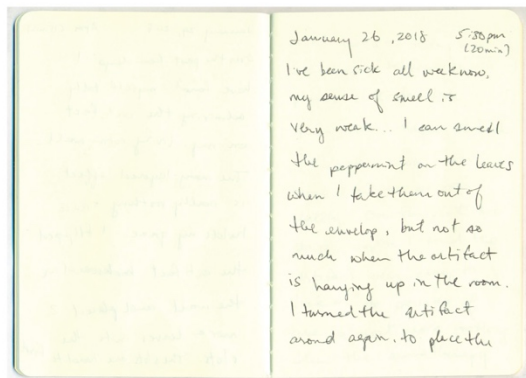 January 26, 2018 5:30pm
(20min)
I've been sick all week now,
my sense of smell is
very weak... I can smell
the peppermint on the leaves
when I take them out of
the envelop, but not so
much when the artifact
is hanging up in the room.
I turned the artifact
around again, to place the